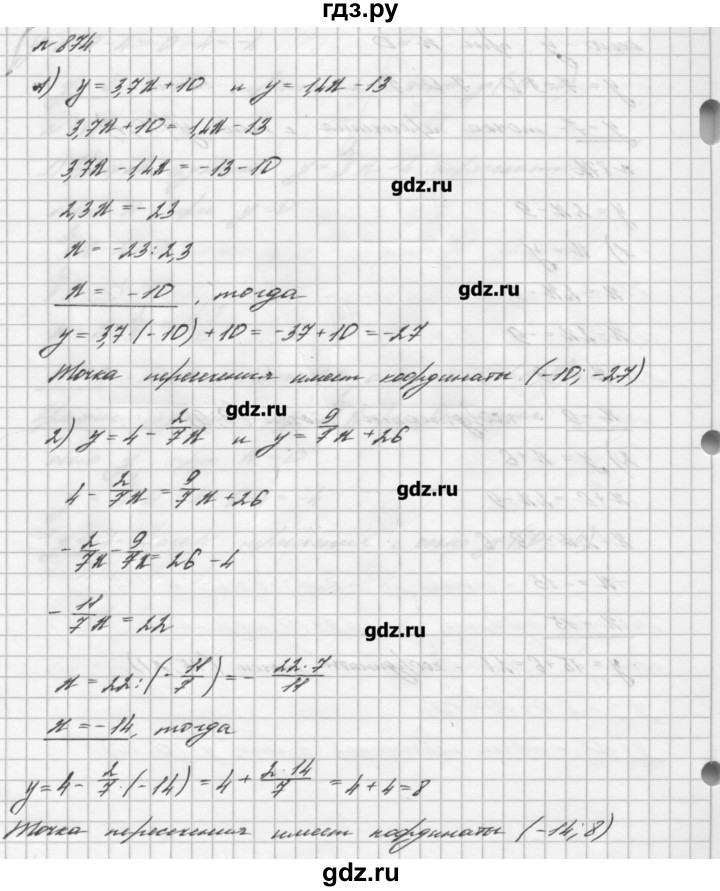 гдз.ру
№ 874
1) y = 3,7x + 10 и y = 1,4x - 13
3,7x + 10 = 1,4x - 13
3,7x - 1,4x = -13 - 10
gdz.ru
2,3x = -23
x = -23 : 2,3
x = -10, тогда
gdz.ru
y = 3,7·(-10) + 10 = -37 + 10 = -27
Точка пересечения имеет координаты (-10; -27)
gdz.ru
2) y = 4 - 2/7x и y = 9/7x + 26
4 - 2/7x = 9/7x + 26
gdz.ru
-2/7x - 9/7x = 26 - 4
-11/7x = 22
gdz.ru
x = 22 : (-11/7) = - 22·7/11
x = -14, тогда
y = 4 - 2/7·(-14) = 4 + 2·14/7 = 4 + 4 = 8
Точка пересечения имеет координаты (-14; 8)
gdz.ru